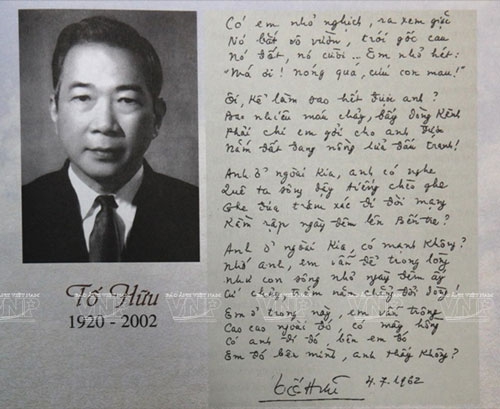 Tố Hữu
1920 - 2002
Có em nhỏ nghịch, ra xem giặc
Nó bắt vô vườn, trói gốc cau
Nó đốt, nó cười ... Em nhỏ hét:
"Má ơi! nóng quá, cứu con mau!"
Ôi, kể làm sao hết được anh?
Bao nhiêu máu chảy, đầy dòng kênh
Phải chi em gởi cho anh được
Nắm đất đang nồng lửa đấu tranh!
Anh ở ngoài kia, anh có nghe
Quê ta sông dậy tiếng chèo ghe
Ghe đưa trăm xác đi đòi mạng
Rầm rập ngày đêm lên Bến tre?
Anh ở ngoài kia, có mạnh không?
Nhớ anh, em vẫn để trong lòng
Như con sông nhỏ ngày đêm ấy
Cứ chảy trăm năm chẳng đổi dòng!
Em ở trong này, em vẫn trông
Cao cao ngoài đó, có mây hồng
Có anh đi đó, bên em đó
Em đó bên mình, anh thấy không?
Tố Hữu 4.7.1962
BÁO ẢNH VIỆT NAM
VNP
BÁO ẢNH VIỆT NAM
VNP
BÁO ẢNH VIỆT NAM
VNP